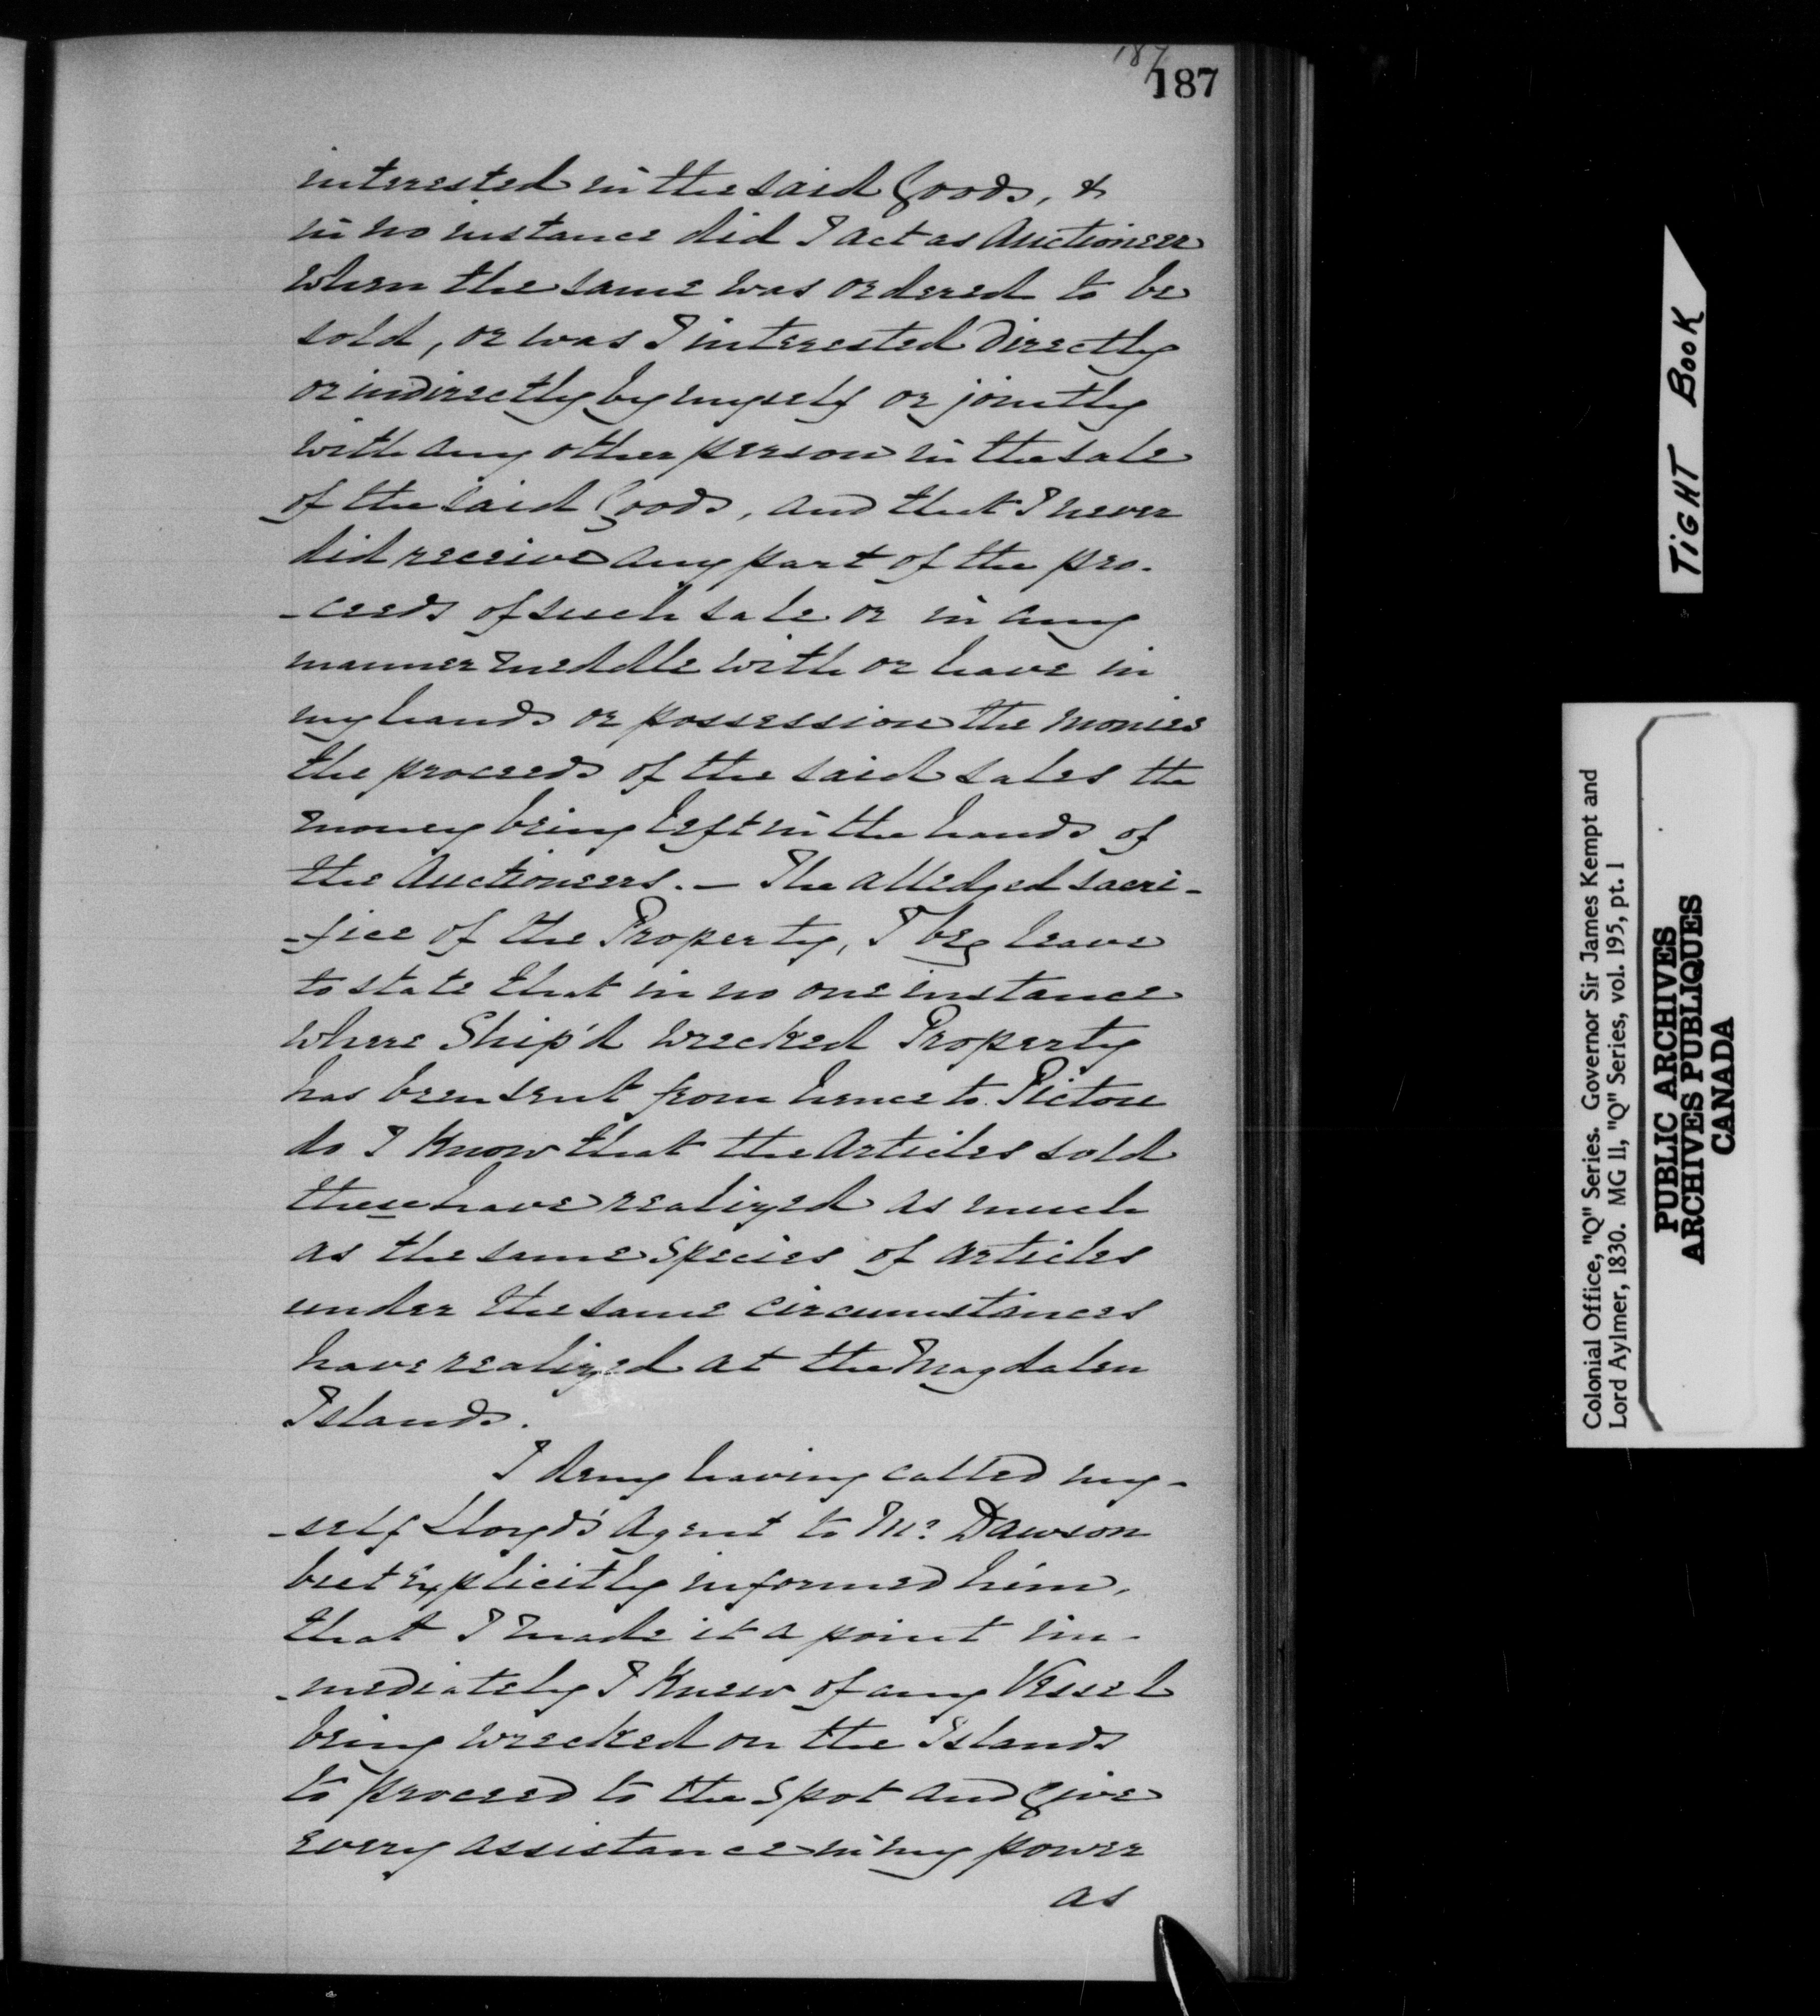 187
187
interested in the said Goods, &
in no instance did I act as Auctioneer
when the same was ordered to be
sold, or was I interested Directly
or indirectly by myself or jointly
with any other person in the sale
of the said Goods, and that I never
did receive any part of the pro-
-ceeds of such sale or in any
manner meddle with or have in
my hands or possession the monies
the proceeds of the said sales the
money being left in the hands of
the Auctioneers. — The alledged sacri-
-fice of the Property, I beg leave
to state that in no one instance
where Ship'd wrecked Property
has been sent from hence to Pictou
do I know that the articles sold
there have realized as much
as the same species of articles
under the same circumstances
have realized at the Magdalen
Islands.
I deny having called my-
-self Lloyd's Agent to Mr. Dawson
but explicitly informed him,
that I made it a point im-
-mediately I knew of any Vessel
being wrecked on the Islands
to proceed to the spot and Give
every assistance in my power
as
TIGHT BOOK
Colonial Office, "Q" Series. Governor Sir James Kempt and
Lord Aylmer, 1830. MG 11, "Q" Series, vol. 195, pt. 1
PUBLIC ARCHIVES
ARCHIVES PUBLIQUES
CANADA